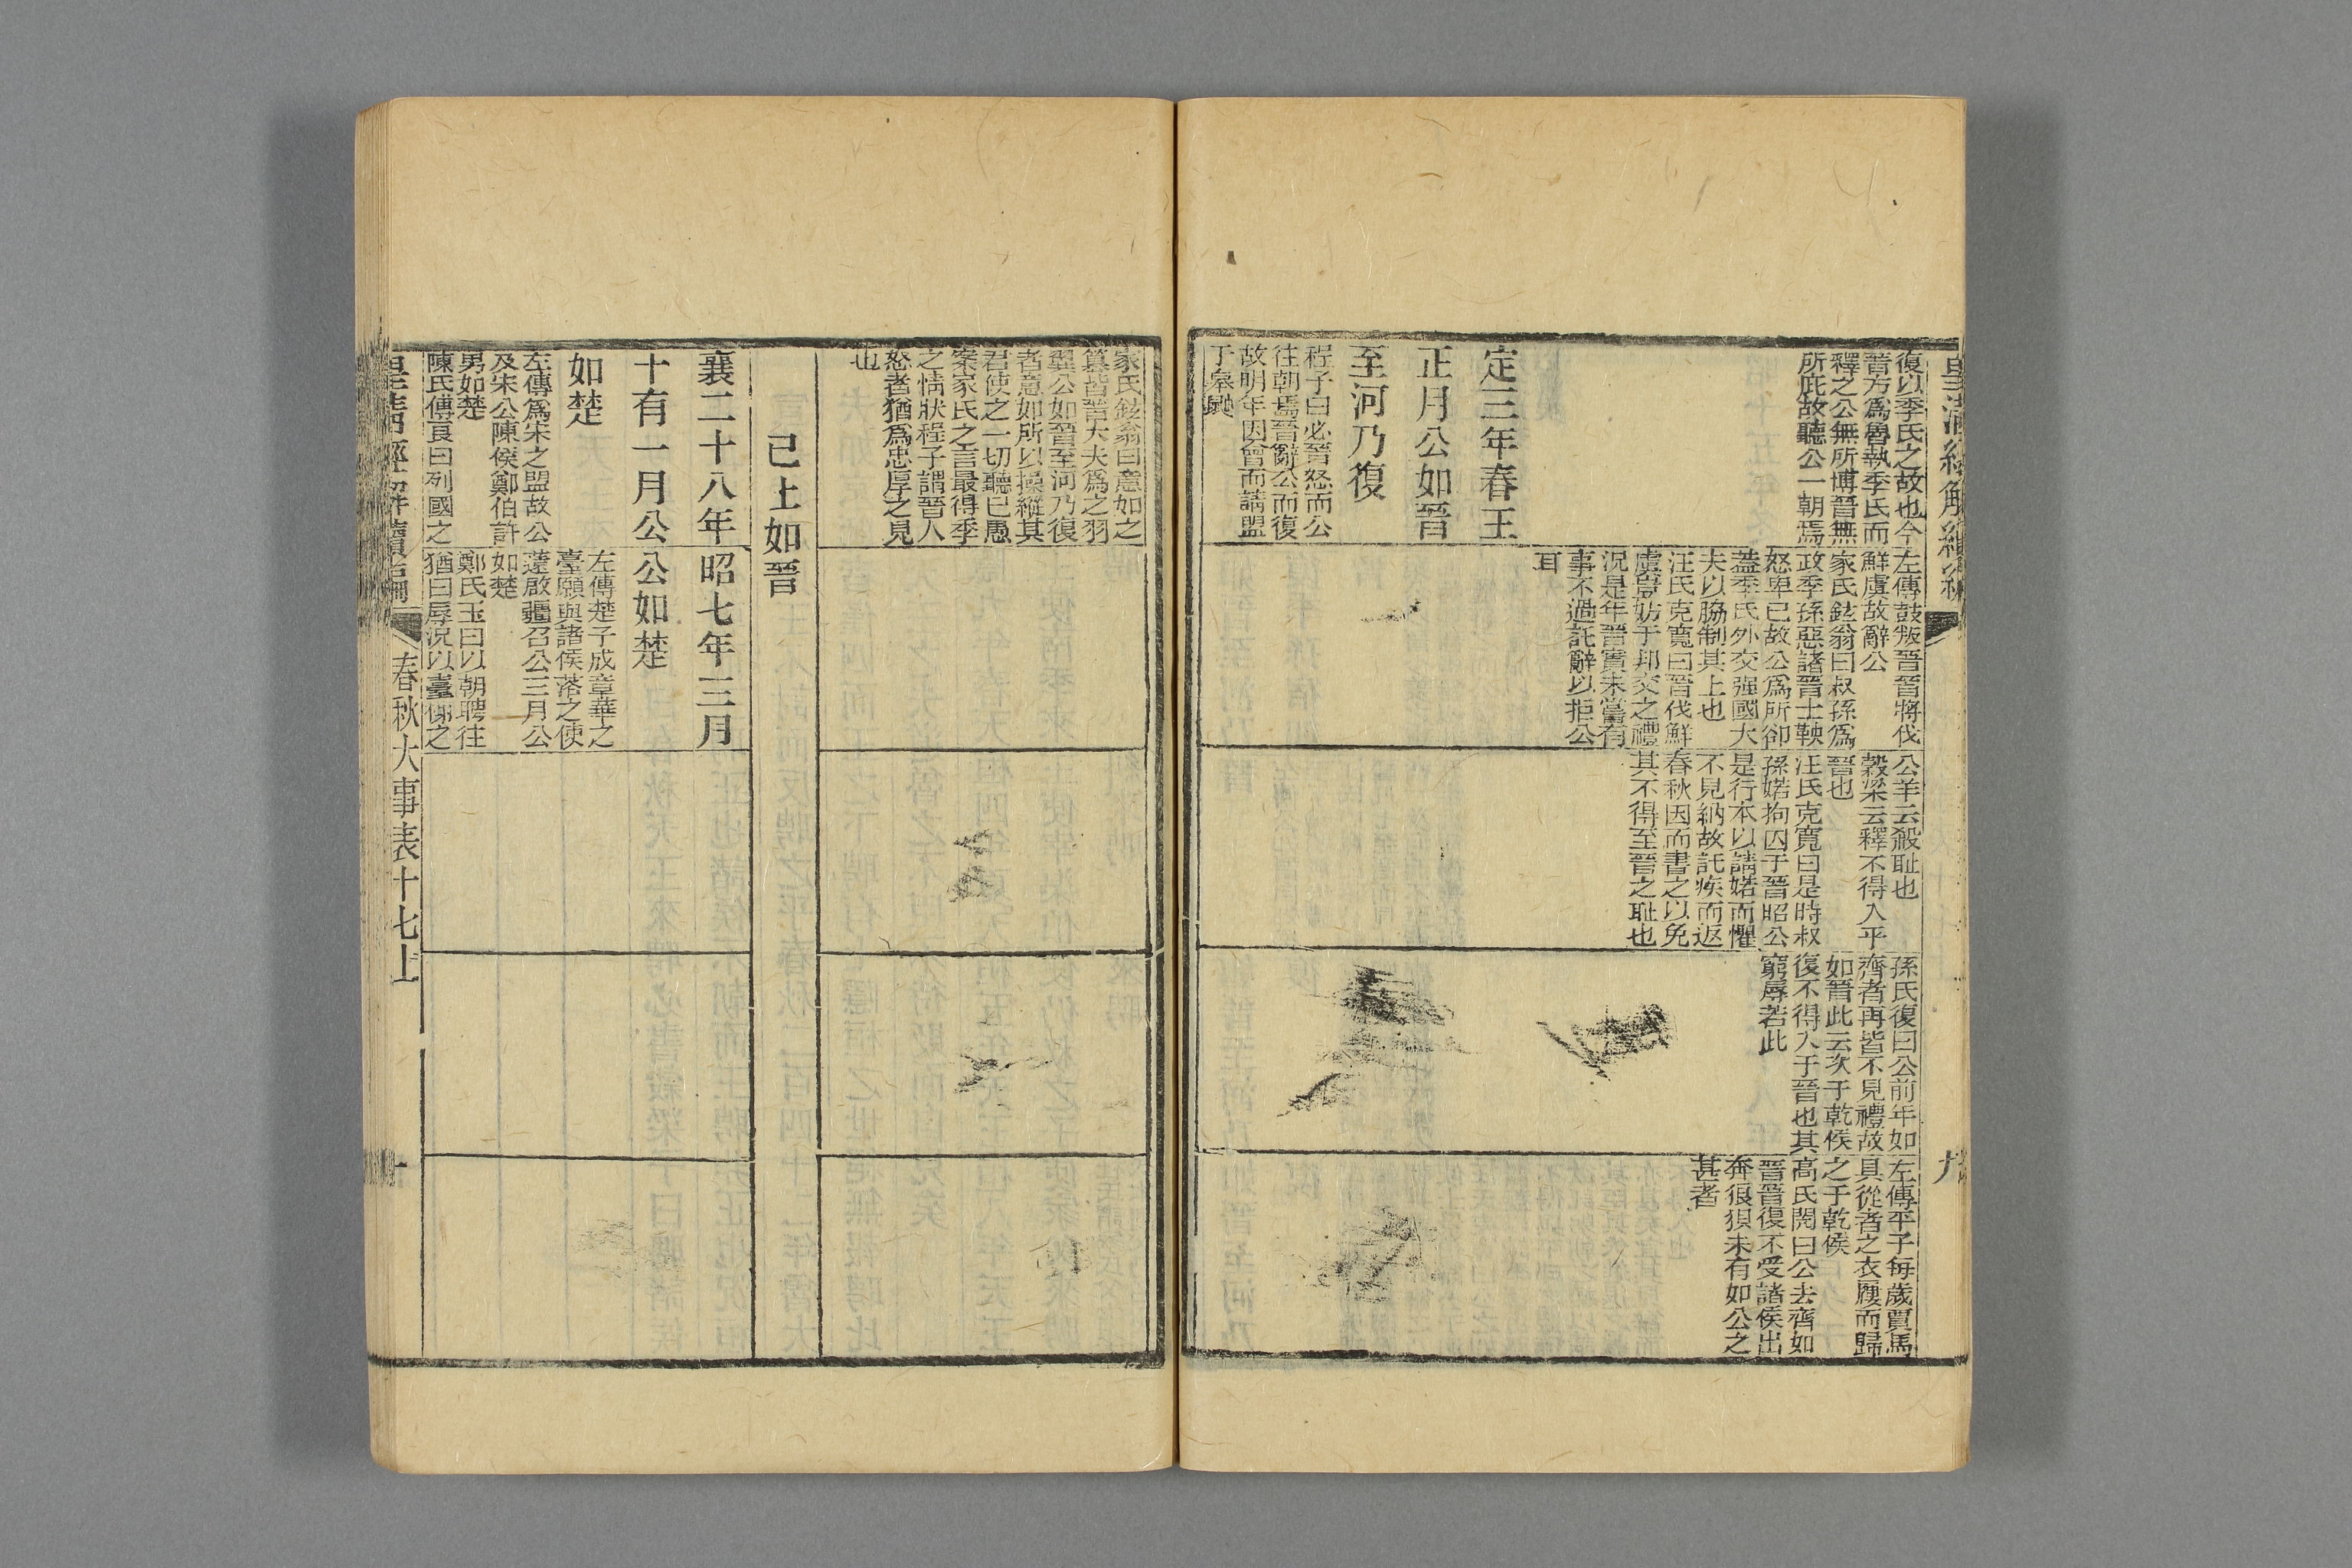 皇清經解續編
復以季氏之故也今
晉方爲魯執季氏而
釋之公無所愽晉無
所庇故聽公一朝焉
定三年春王
正月公如晉
至河乃復
程子曰必晉怒而公
往朝焉晉辭公而復
故明年因會而請盟
于皋鼬
左傳鼓叛晉晉將伐
鮮虞故辭公
家氏鉉翁曰叔孫爲
政季孫惡諸晉士鞅
怒卑已故公爲所卻
蓋季氏外交强國大
夫以脇制其上也
汪氏克寬曰晉伐鮮
虞豈妨于邦交之禮
況是年晉實未嘗有
事不過託辭以拒公
耳
公羊云殺耻也
穀梁云釋不得入乎
晉也
汪氏克寬曰是時叔
孫婼拘囚于晉昭公
是行本以請婼而懼
不見納故託疾而返
春秋因而書之以免
其不得至晉之耻也
孫氏復曰公前年如
齊者再皆不見禮故
如晉此云次于乾侯
復不得入于晉也其
窮辱若此
左傳平子每歲買馬
具從者之衣屨而歸
之于乾侯
高氏閌曰公去齊如
晉晉復不受諸侯出
奔狼狽未有如公之
甚者
九
家氏鉉翁曰意如之
簒皆晉大夫爲之羽
翼公如晉至河乃復
者意如所以操縱其
君使之一切聽已愚
案家氏之言最得季
之情狀程子謂晉人
怒者猶爲忠厚之見
也
已上如晉
襄二十八年
十有一月公
如楚
左傳爲宋之盟故公
及宋公陳侯鄭伯許
男如楚
陳氏傅良曰列國之
昭七年三月
公如楚
左傳楚子成章華之
臺願與諸侯落之使
薳啟疆召公三月公
如楚
鄭氏玉曰以朝聘往
猶曰辱況以臺僃之
皇清經解續編
春秋大事表十七上
十